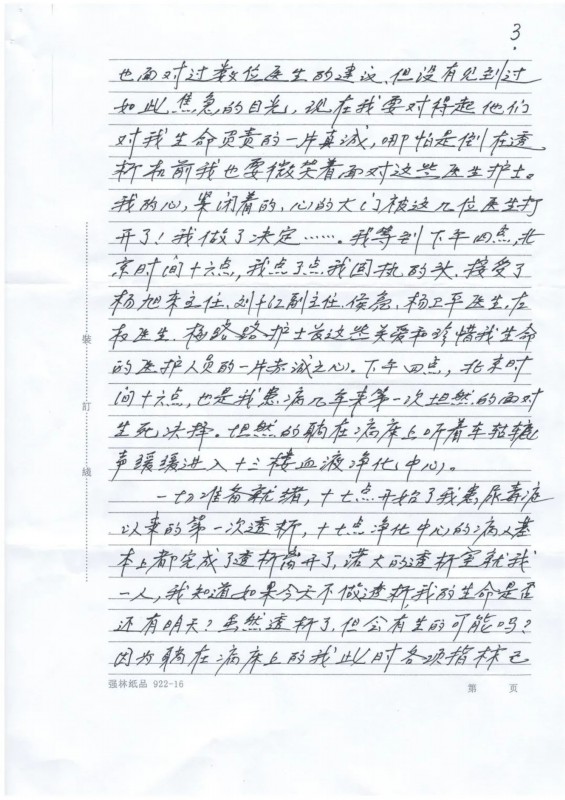 3.
也面对过数位医生的建议、但没有见到过
如此焦急的目光，现在我要对得起他们
对我生命负责的一片真诚，哪怕是倒在透
析机前我也要微笑着面对这些医生护士。
我的心，紧闭着的，心的大门被这几位医生打
开了！我做了决定……。我等到下午四点，北
京时间十六点，我点了点我固执的头、接受了
杨旭东主任、刘千江副主任、侯亮、杨卫平医生、左
权医生、杨路路护士长这些关爱和珍惜我生命
的医护人员的一片赤诚之心。下午四点，北京时
间十六点，也是我患病几年来第一次坦然的面对
生死决择。坦然的躺在病床上听着车轱辘
声缓缓进入十三楼血液净化（中心）。
一切准备就绪，十七点开始了我患尿毒症
以来的第一次透析，十七点净化中心的病人基
本上都完成了透析离开了，诺大的透析室就我
一人，我知道如果今天不做透析，我的生命是否
还有明天？虽然透析了，但会有生的可能吗？
因为躺在病床上的我此时各项指标已
装
订
线
强林纸品 922-16
第 页